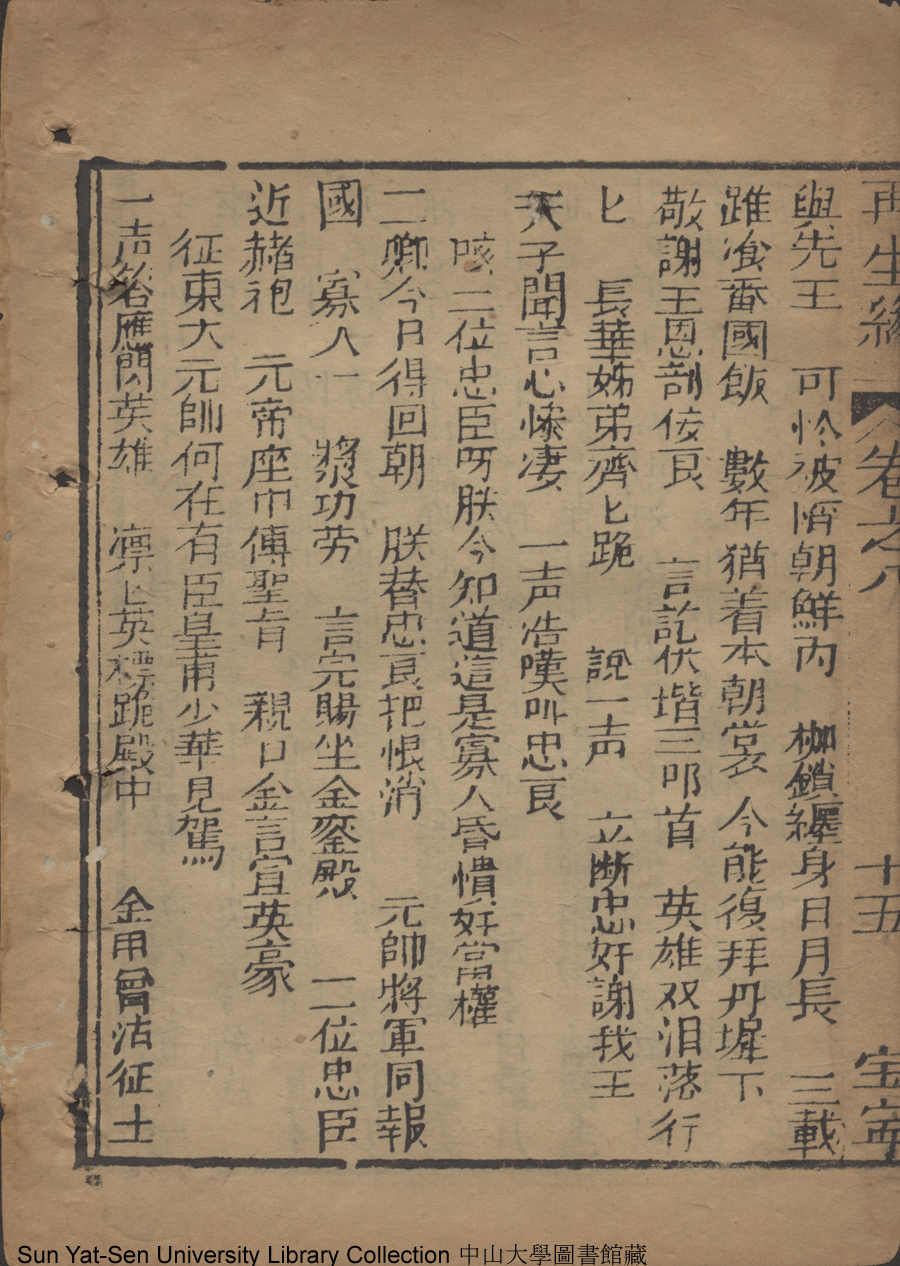 再生緣 卷之八 十五
與先王 可怜被陷朝鮮內 枷鎖纏身日月長 三載
雖飡番國飯 數年猶着本朝裳 今能復拜丹墀下
敬謝王恩剖佞良 言訖伏堦三叩首 英雄双泪落行
匕 長華姊弟齊匕跪 說一声 立断忠奸謝我王
天子聞言心惨凄 一声浩嘆叫忠良
咳二位忠臣吓朕今知道這是寡人昏憒奸當權
二卿今日得回朝 朕替忠良把恨消 元帥將軍同報
國 寡人一 獎功劳 言完賜坐金鑾殿 二位忠臣
近赭袍 元帝座中傳聖旨 親口金言宣英豪
征東大元帥何在有臣皇甫少華見駕
一声答應閃英雄 凛匕英標跪殿中 金甲曾沾征土
Sun Yat-Sen University Library Collection 中山大學圖書館藏